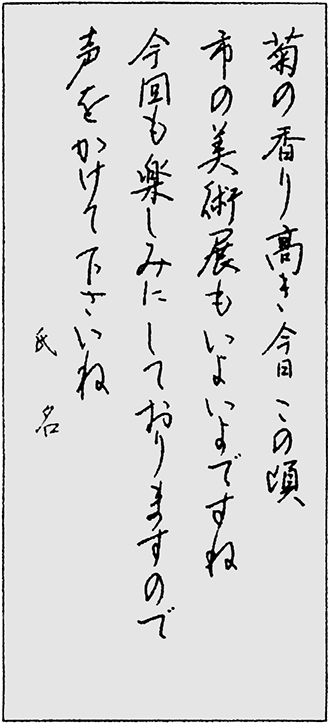 菊の香り高き今日この頃
市の美術展もいよいよですね
今回も楽しみにしておりますので
声をかけて下さいね
氏名